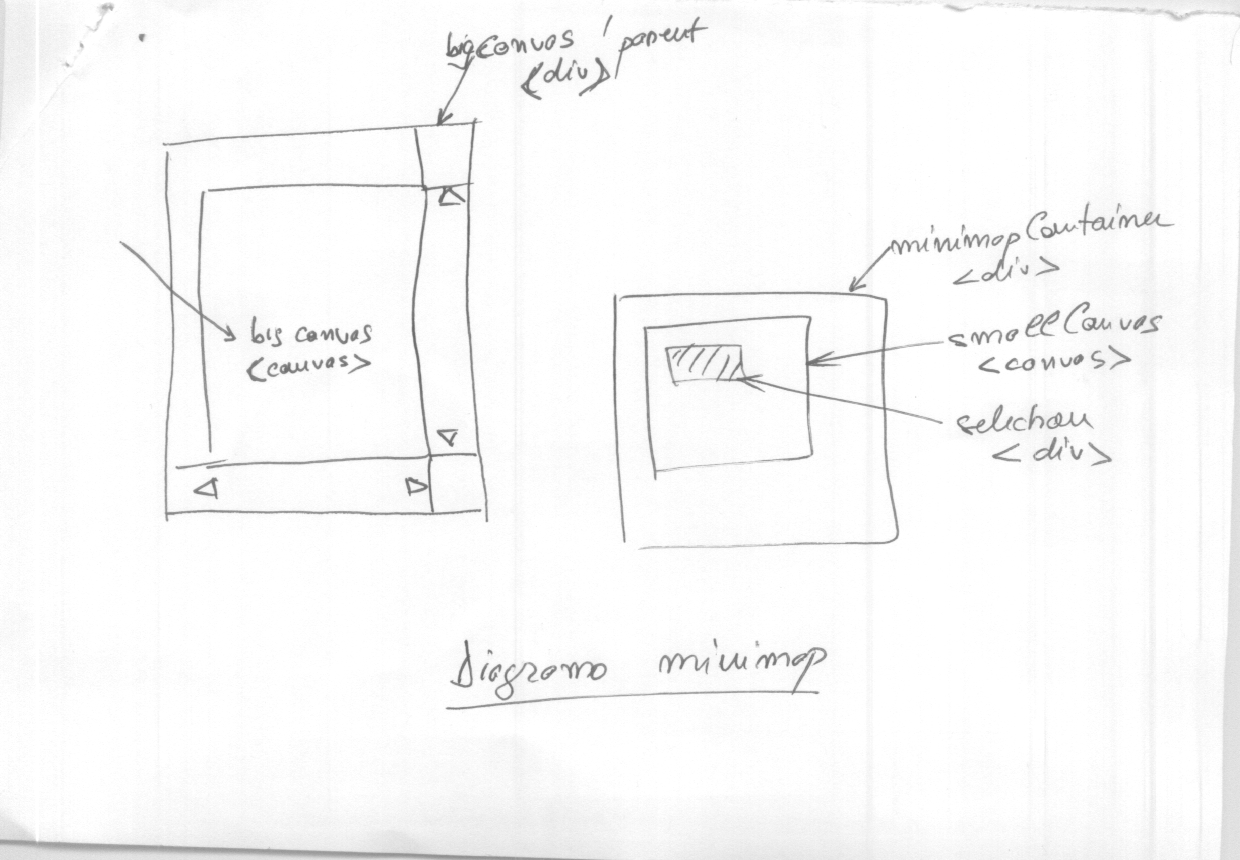 bigCanvas' parent
<div>
big canvas
<canvas>
minimapContainer
<div>
smallCanvas
<canvas>
selection
<div>
Diagramo minimap